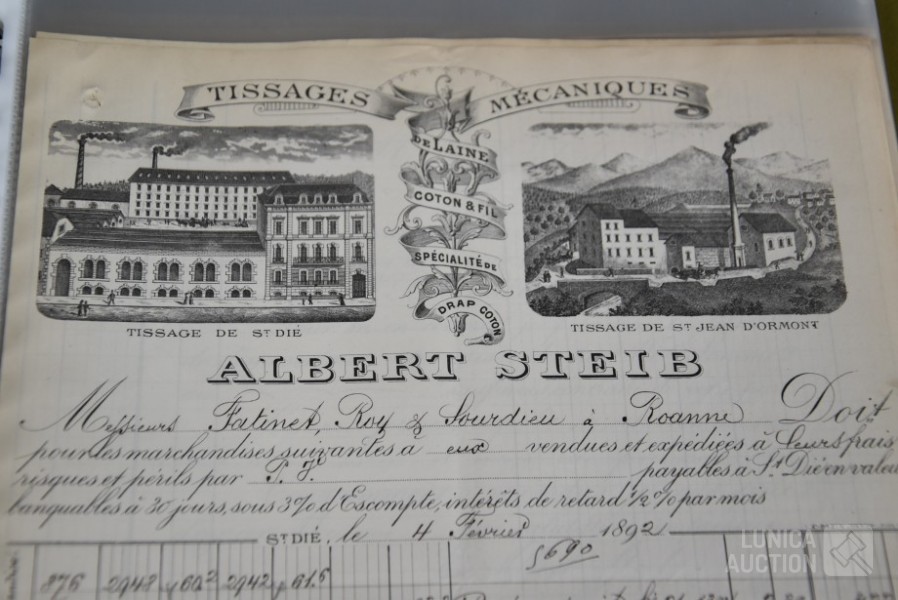 TISSAGES MÉCANIQUES
DE LAINE
COTON & FIL
SPÉCIALITÉ DE
DRAP COTON
TISSAGE DE ST DIÉ
TISSAGE DE ST JEAN D'ORMONT
ALBERT STEIB
Messieurs Fatinet, Roy & Sourdieu à Roanne Doit
pour les marchandises suivantes à eux vendues et expédiées à leurs frais
risques et périls par P. V. payables à St Dié en valeur
banquables à 30 jours, sous 3% d'Escompte, intérêts de retard ½ % par mois
ST DIÉ, le 4 Février 1892
5690
876 2948 460² 2942 461.5
LUNICA
AUCTION